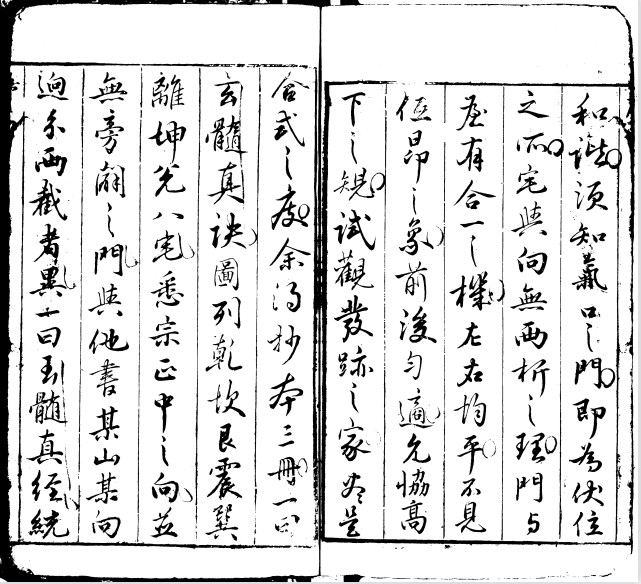 和諧須知氣口之門即為伏位
之所宅與向無兩析之理門与
屋有合一之機左右均平不見
低昂之象前後勻適允恊高
下之規試觀發跡之家尽是
合式之度余得抄本三冊一曰
玄髓真訣圖列乾坎艮震巽
離坤兌八宅悉宗正中之向並
無旁開之門與他書某山某向
迥尓兩截者異一曰玉髓真經統